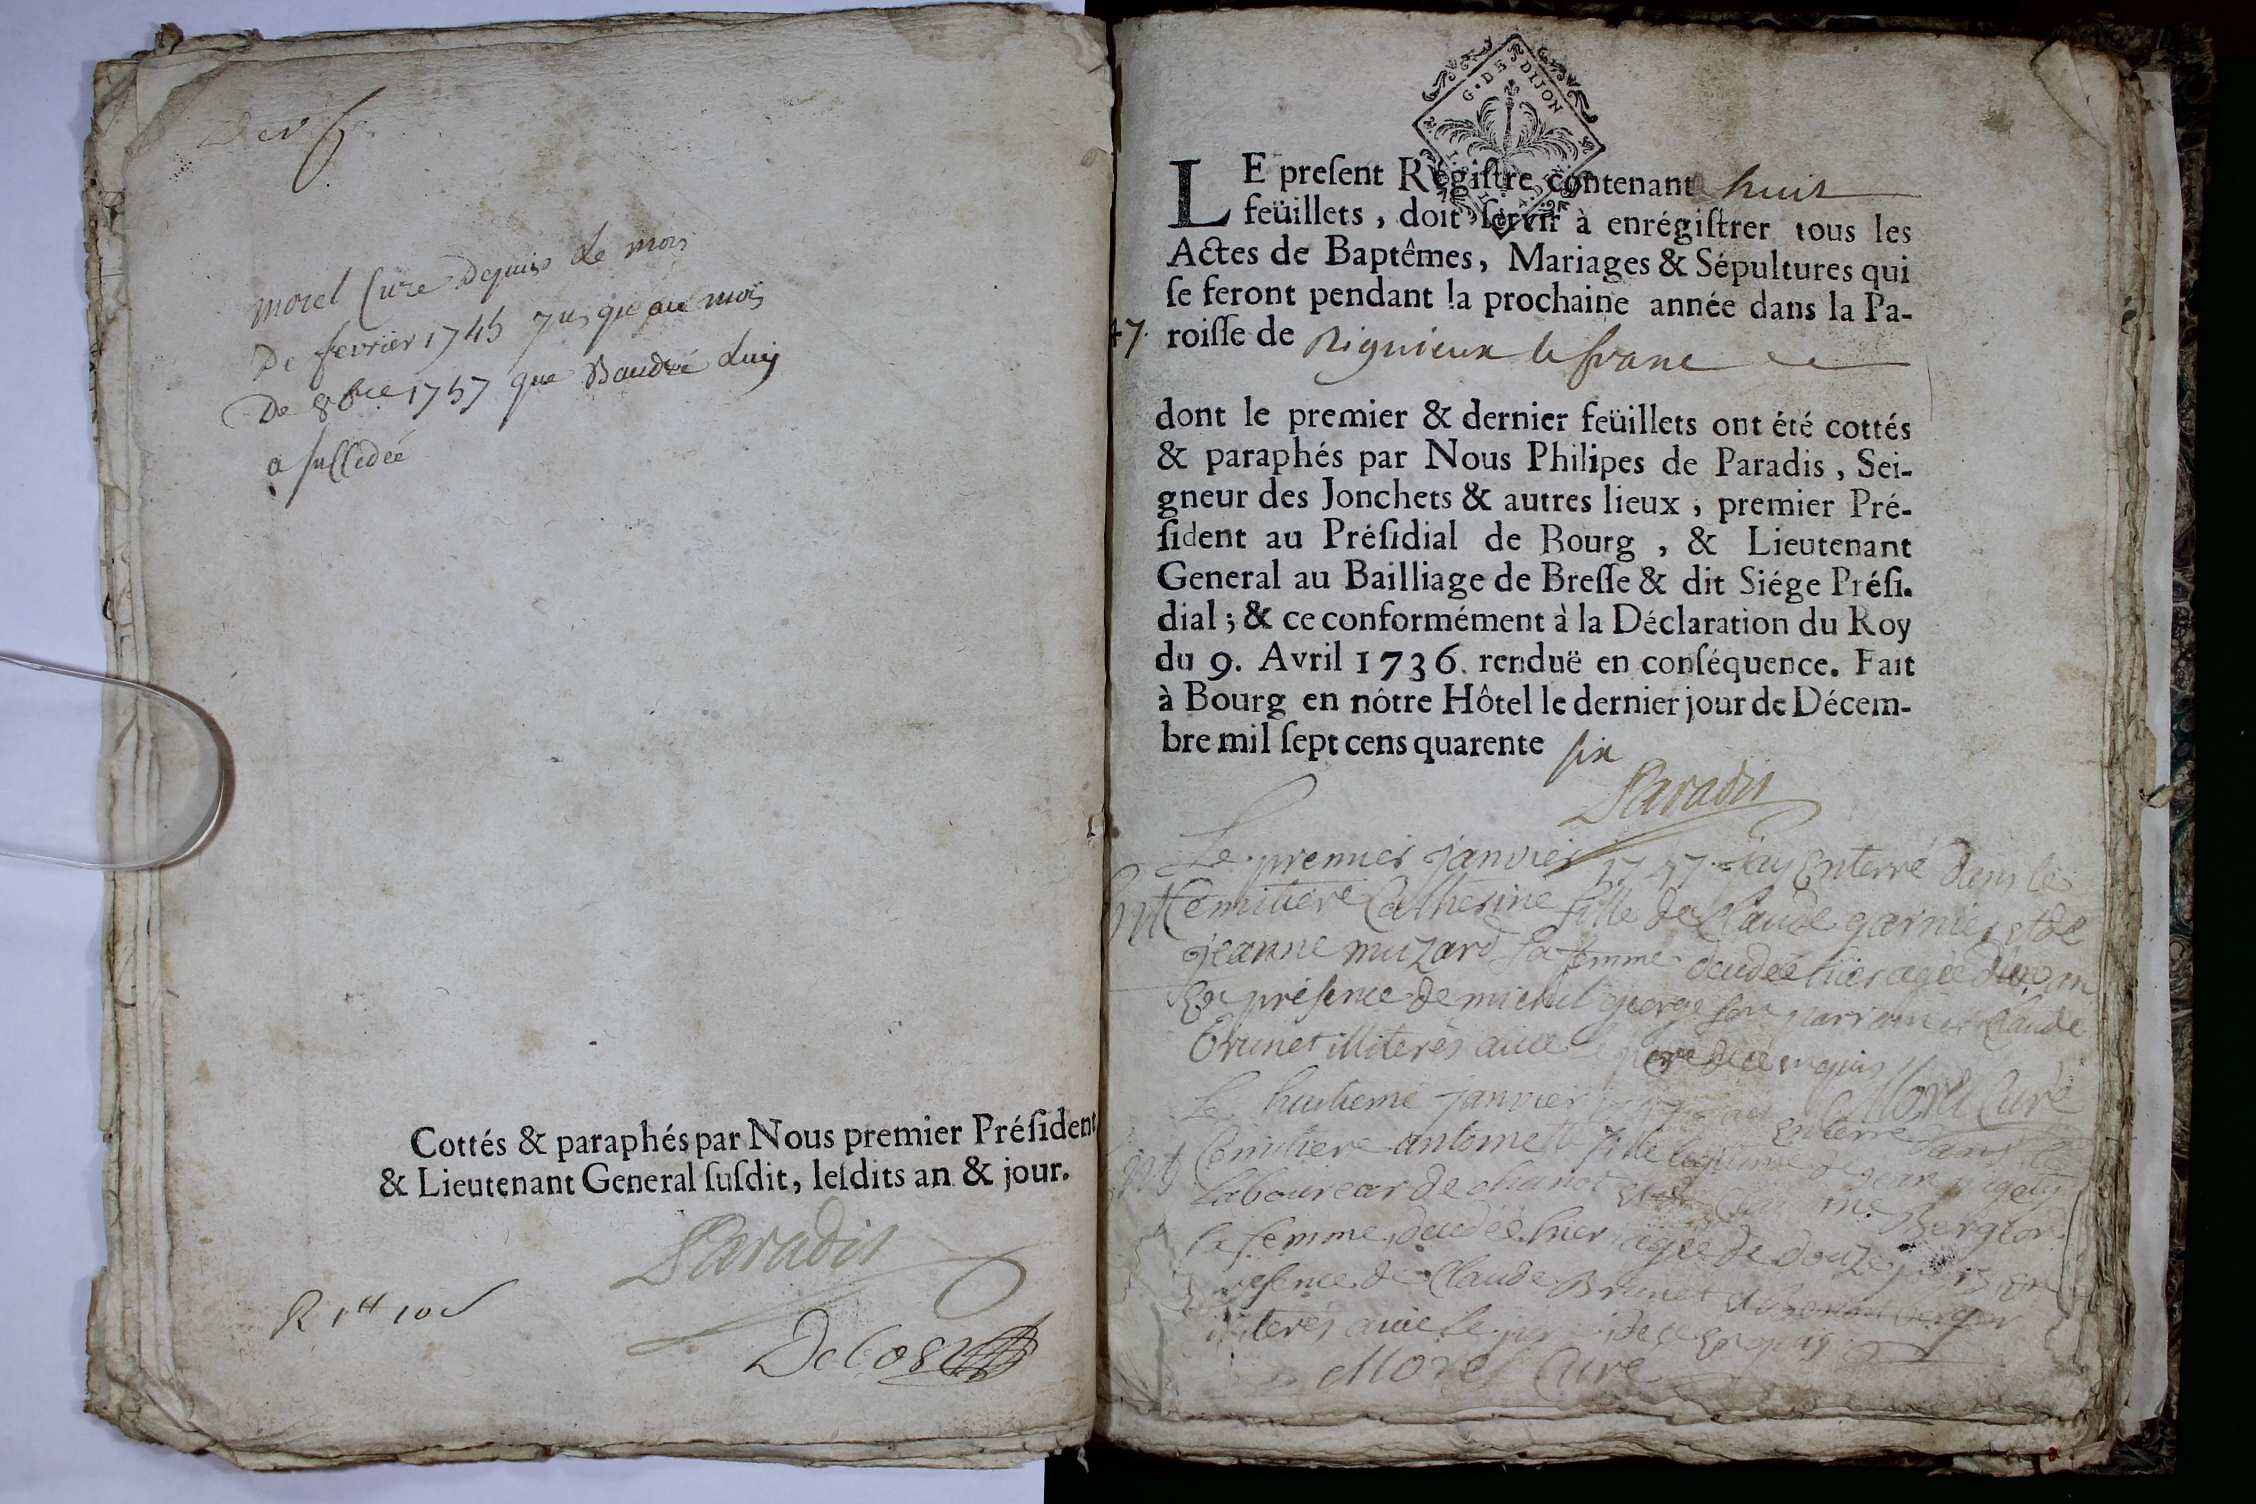 Der
morel Cure Depuis le mois
De fevrier 1745 jusque au mois
De 8bre 1757 que Baudré luy
a succedée
Cottés & paraphés par Nous premier Préſident
& Lieutenant General ſuſdit, leſdits an & jour.
Paradis
R 1tt 10s
G. DE DIJON
LE preſent Régiſtre contenant huit
feüillets, doit ſervir à enrégiſtrer tous les
Actes de Baptêmes, Mariages & Sépultures qui
ſe feront pendant la prochaine année dans la Pa-
47. roiſſe de Rignieux le franc
dont le premier & dernier feüillets ont été cottés
& paraphés par Nous Philipes de Paradis, Sei-
gneur des Jonchets & autres lieux, premier Pré-
ſident au Préſidial de Bourg, & Lieutenant
General au Bailliage de Breſſe & dit Siége Préſi-
dial; & ce conformément à la Déclaration du Roy
du 9. Avril 1736. renduë en conſéquence. Fait
à Bourg en nôtre Hôtel le dernier jour de Décem-
bre mil ſept cens quarente six
Paradis
Le premier janvier 1747 jay Enterré dans le
Cemitiere Catherine fille de Claude garnier et de
jeanne muzard sa femme decedée hier agée d'un an
En présence de michel george son parrain et Claude
Brunet illiterés avec le pere de ce enquis
Morel Curé
Le huitieme janvier 1747 jay Enterré dans le
Cemitiere antoine fille legitime de jean
Laboureur de chanot et de
sa femme, decedée hier agée de douze jours, En
presence de Claude Brunet et
illiterés avec le pere de ce Enquis
Morel Curé